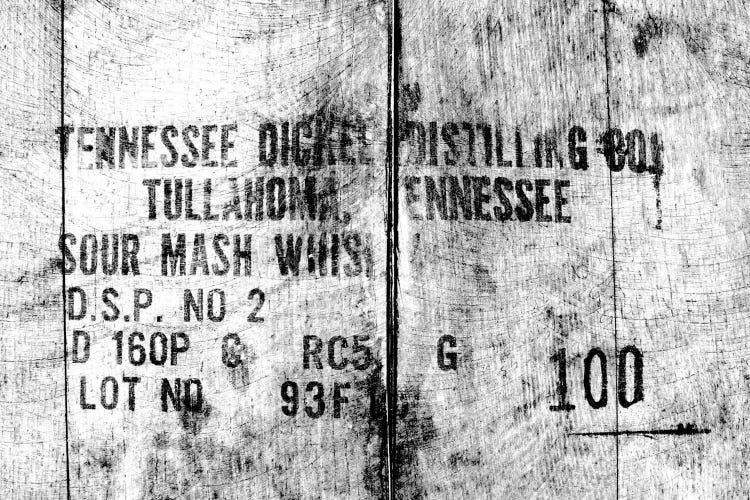 TENNESSEE DICKEL DISTILLING CO.
TULLAHOMA, TENNESSEE
SOUR MASH WHIS
D.S.P. NO 2
D 160P G RC5 G
LOT NO 93F
100